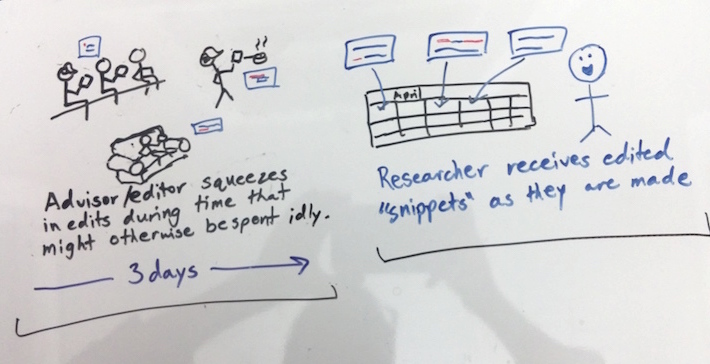 April
Advisor/editor squeezes
in edits during time that
might otherwise be spent idly.
3 days
Researcher receives edited
"snippets" as they are made